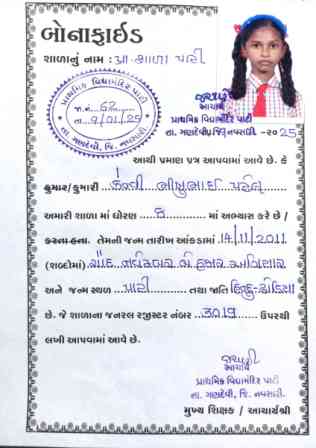 બોનાફાઇડ
શાળાનું નામ : પ્રા.શાળા પાટી
પ્રાથમિક વિદ્યામંદિર પાટી
જા.નં. 62
તા. 9/01/25
તા. ગણદેવી, જિ. નવસારી
આચાર્ય
પ્રાથમિક વિદ્યામંદિર પાટી
તા. ગણદેવી, જિ. નવસારી - ૨૦25
આથી પ્રમાણ પત્ર આપવામાં આવે છે. કે
કુમાર/કુમારી પટેલ
અમારી શાળા માં ધોરણ 8 માં અભ્યાસ કરે છે /
કરતા હતા. તેમની જન્મ તારીખ આંકડામાં 14/11/2011
(શબ્દોમાં) ચૌદ નવેમ્બર બે હજાર અગિયાર
અને જન્મ સ્થળ પાટી તથા જાતિ હિન્દુ-ઢોડિયા
છે. જે શાળાના જનરલ રજીસ્ટર નંબર 3019 ઉપરથી
લખી આપવામાં આવે છે.
આચાર્ય
પ્રાથમિક વિદ્યામંદિર પાટી
તા. ગણદેવી, જિ. નવસારી.
મુખ્ય શિક્ષક / આચાર્યશ્રી